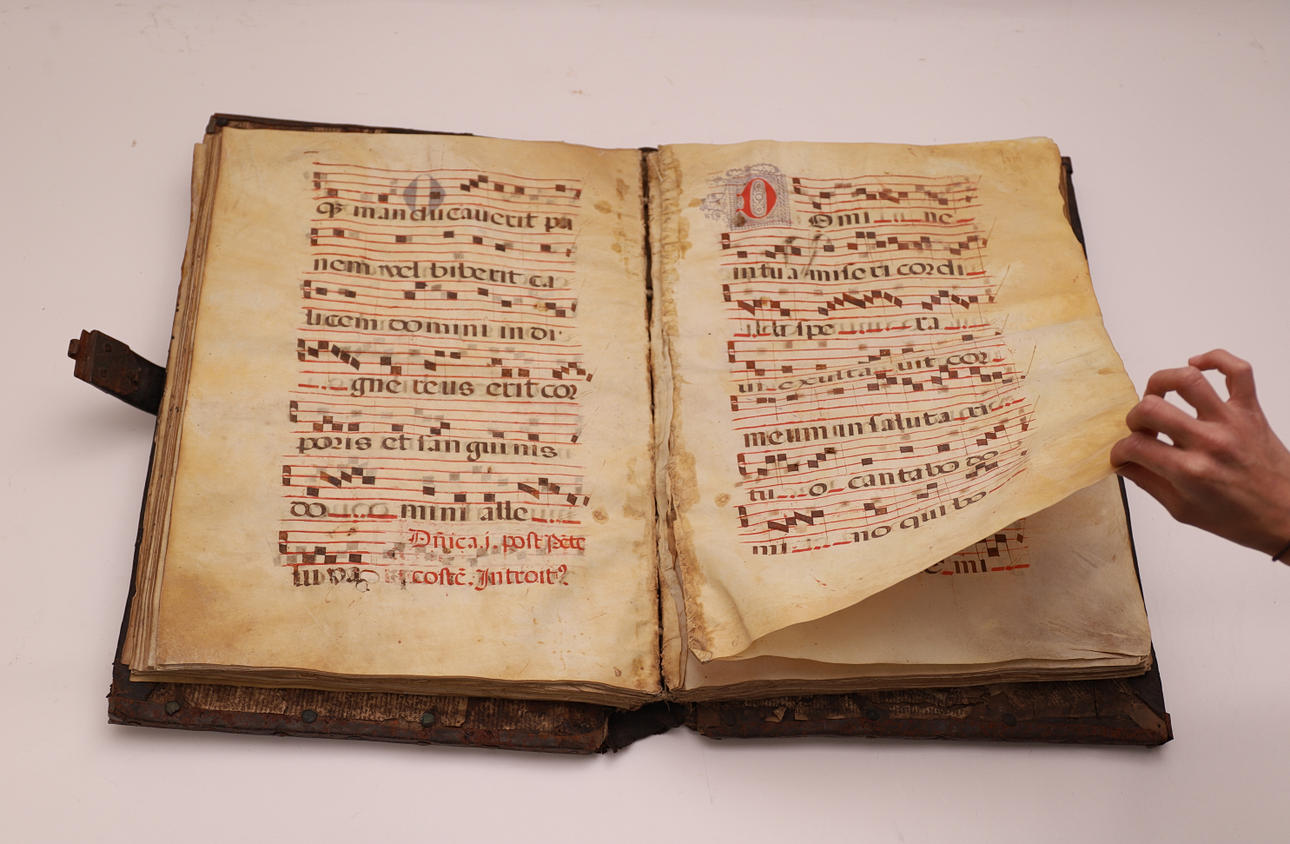 qꝫ manducauerit pa
nem vel biberit ca
licem domini in di
gne reus erit cor
poris et sanguinis
do mini alle
Dñica.j. post pēte
lu ya coste. Introitꝰ
Domi ne
in tua miseri cordi
spe ra
ui exulta uit cor
meum in saluta ri
tu o cantabo do
mi no qui bo
mi